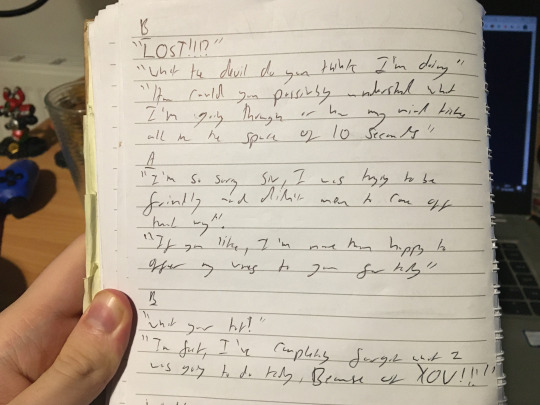 B
"LOST!!!?"
"What the devil do you think I'm doing"
"How could you possibly understand what
I'm going through or how my mind ticks
all in the space of 10 seconds"
A
"I'm so sorry sir, I was trying to be
friendly and didn't mean to come off
that way".
"If you like, I'm more than happy to
offer my to you for today"
B
"What your
"In fact, I've completely forgot what I
was going to do today, Because of YOU!!!"